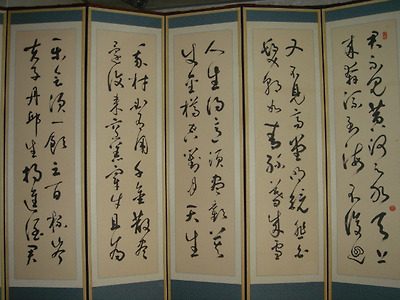 君不見黃河之水天上
來奔流到海不復回
又不見高堂明鏡悲白
髮朝如青絲暮成雪
人生得意須盡歡莫
使金樽空對月天生
我材必有用千金散盡
還復來烹羊宰牛且為
樂會須一飲三百杯岑
夫子丹邱生將進酒君